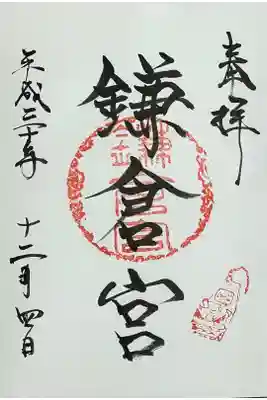 奉拝
鎌倉宮
平成二十年 十二月四日